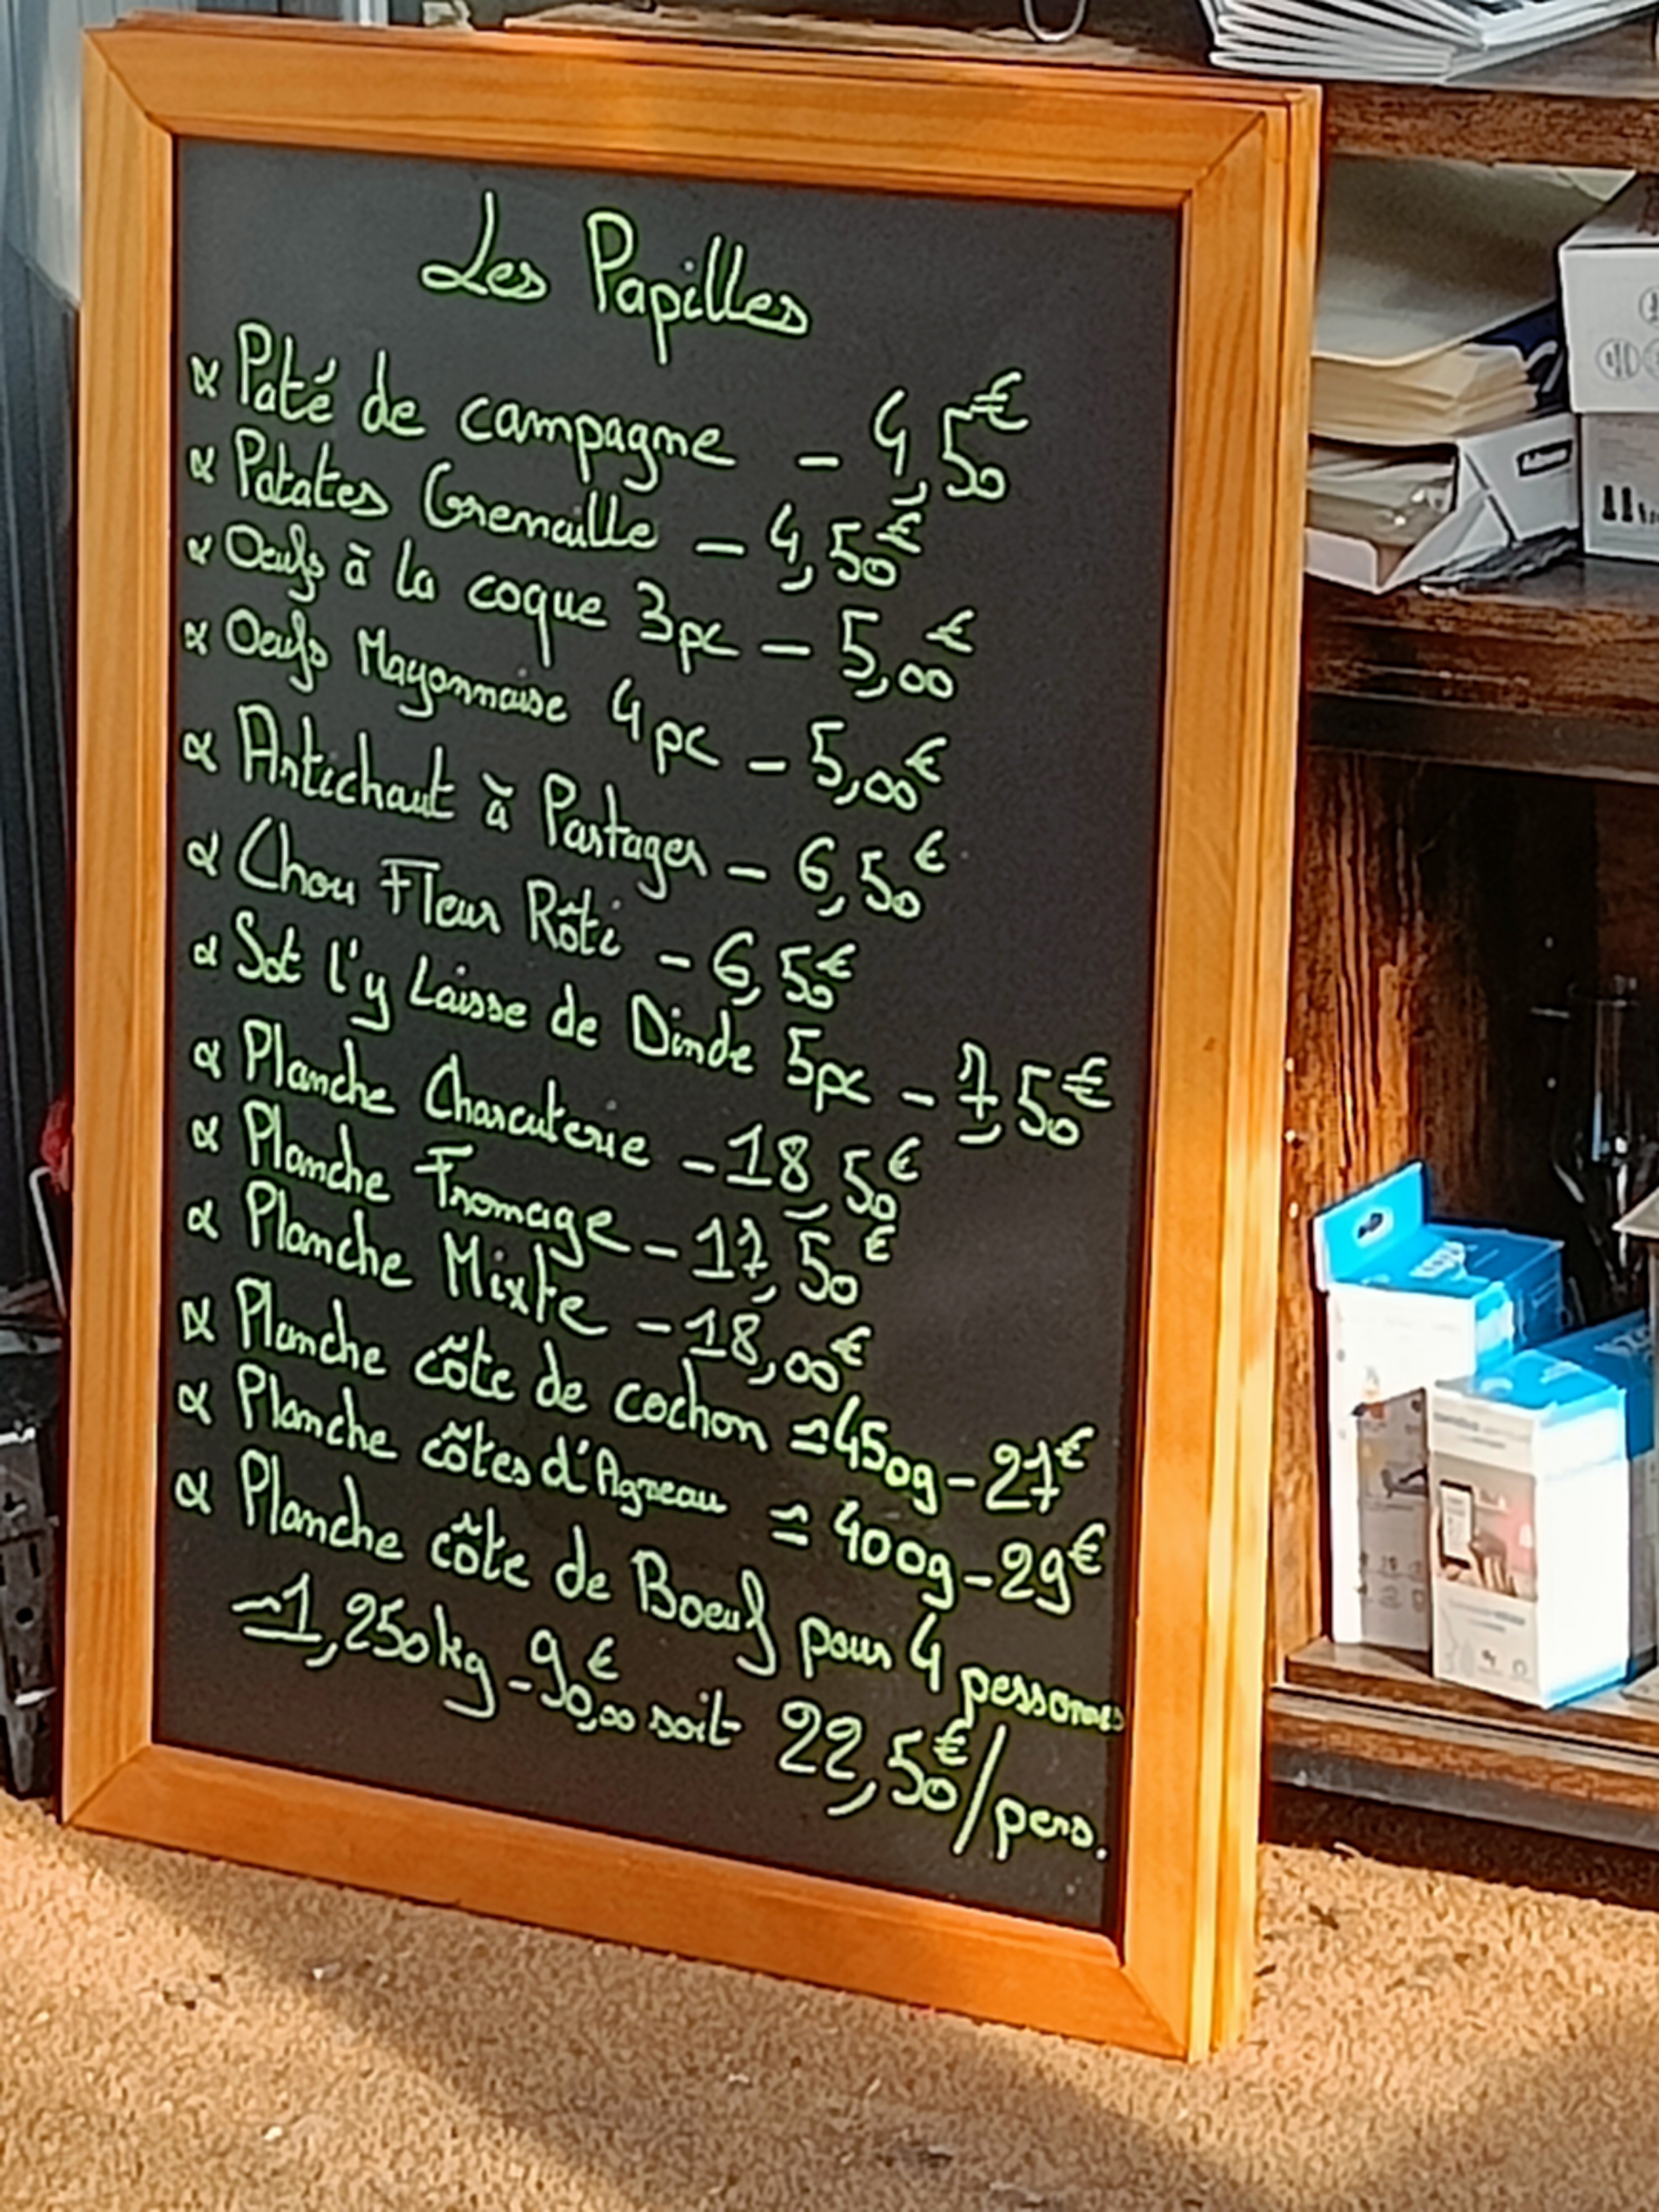 Les Papilles
Paté de campagne - 4,50€
Patates Grenaille - 4,50€
Oeufs à la coque 3pc - 5,00€
Oeufs Mayonnaise 4pc - 5,00€
Artichaut à Partager - 6,50€
Chou Fleur Rôti - 6,50€
Sot l'y Laisse de Dinde 5pc - 7,50€
Planche Charcuterie - 18,50€
Planche Fromage - 17,50€
Planche Mixte - 18,00€
Planche côte de cochon ≃ 450g - 27€
Planche côtes d'Agneau ≃ 400g - 29€
Planche côte de Boeuf pour 4 personnes
≃ 1,250kg - 90,00€ soit 22,50€/pers.